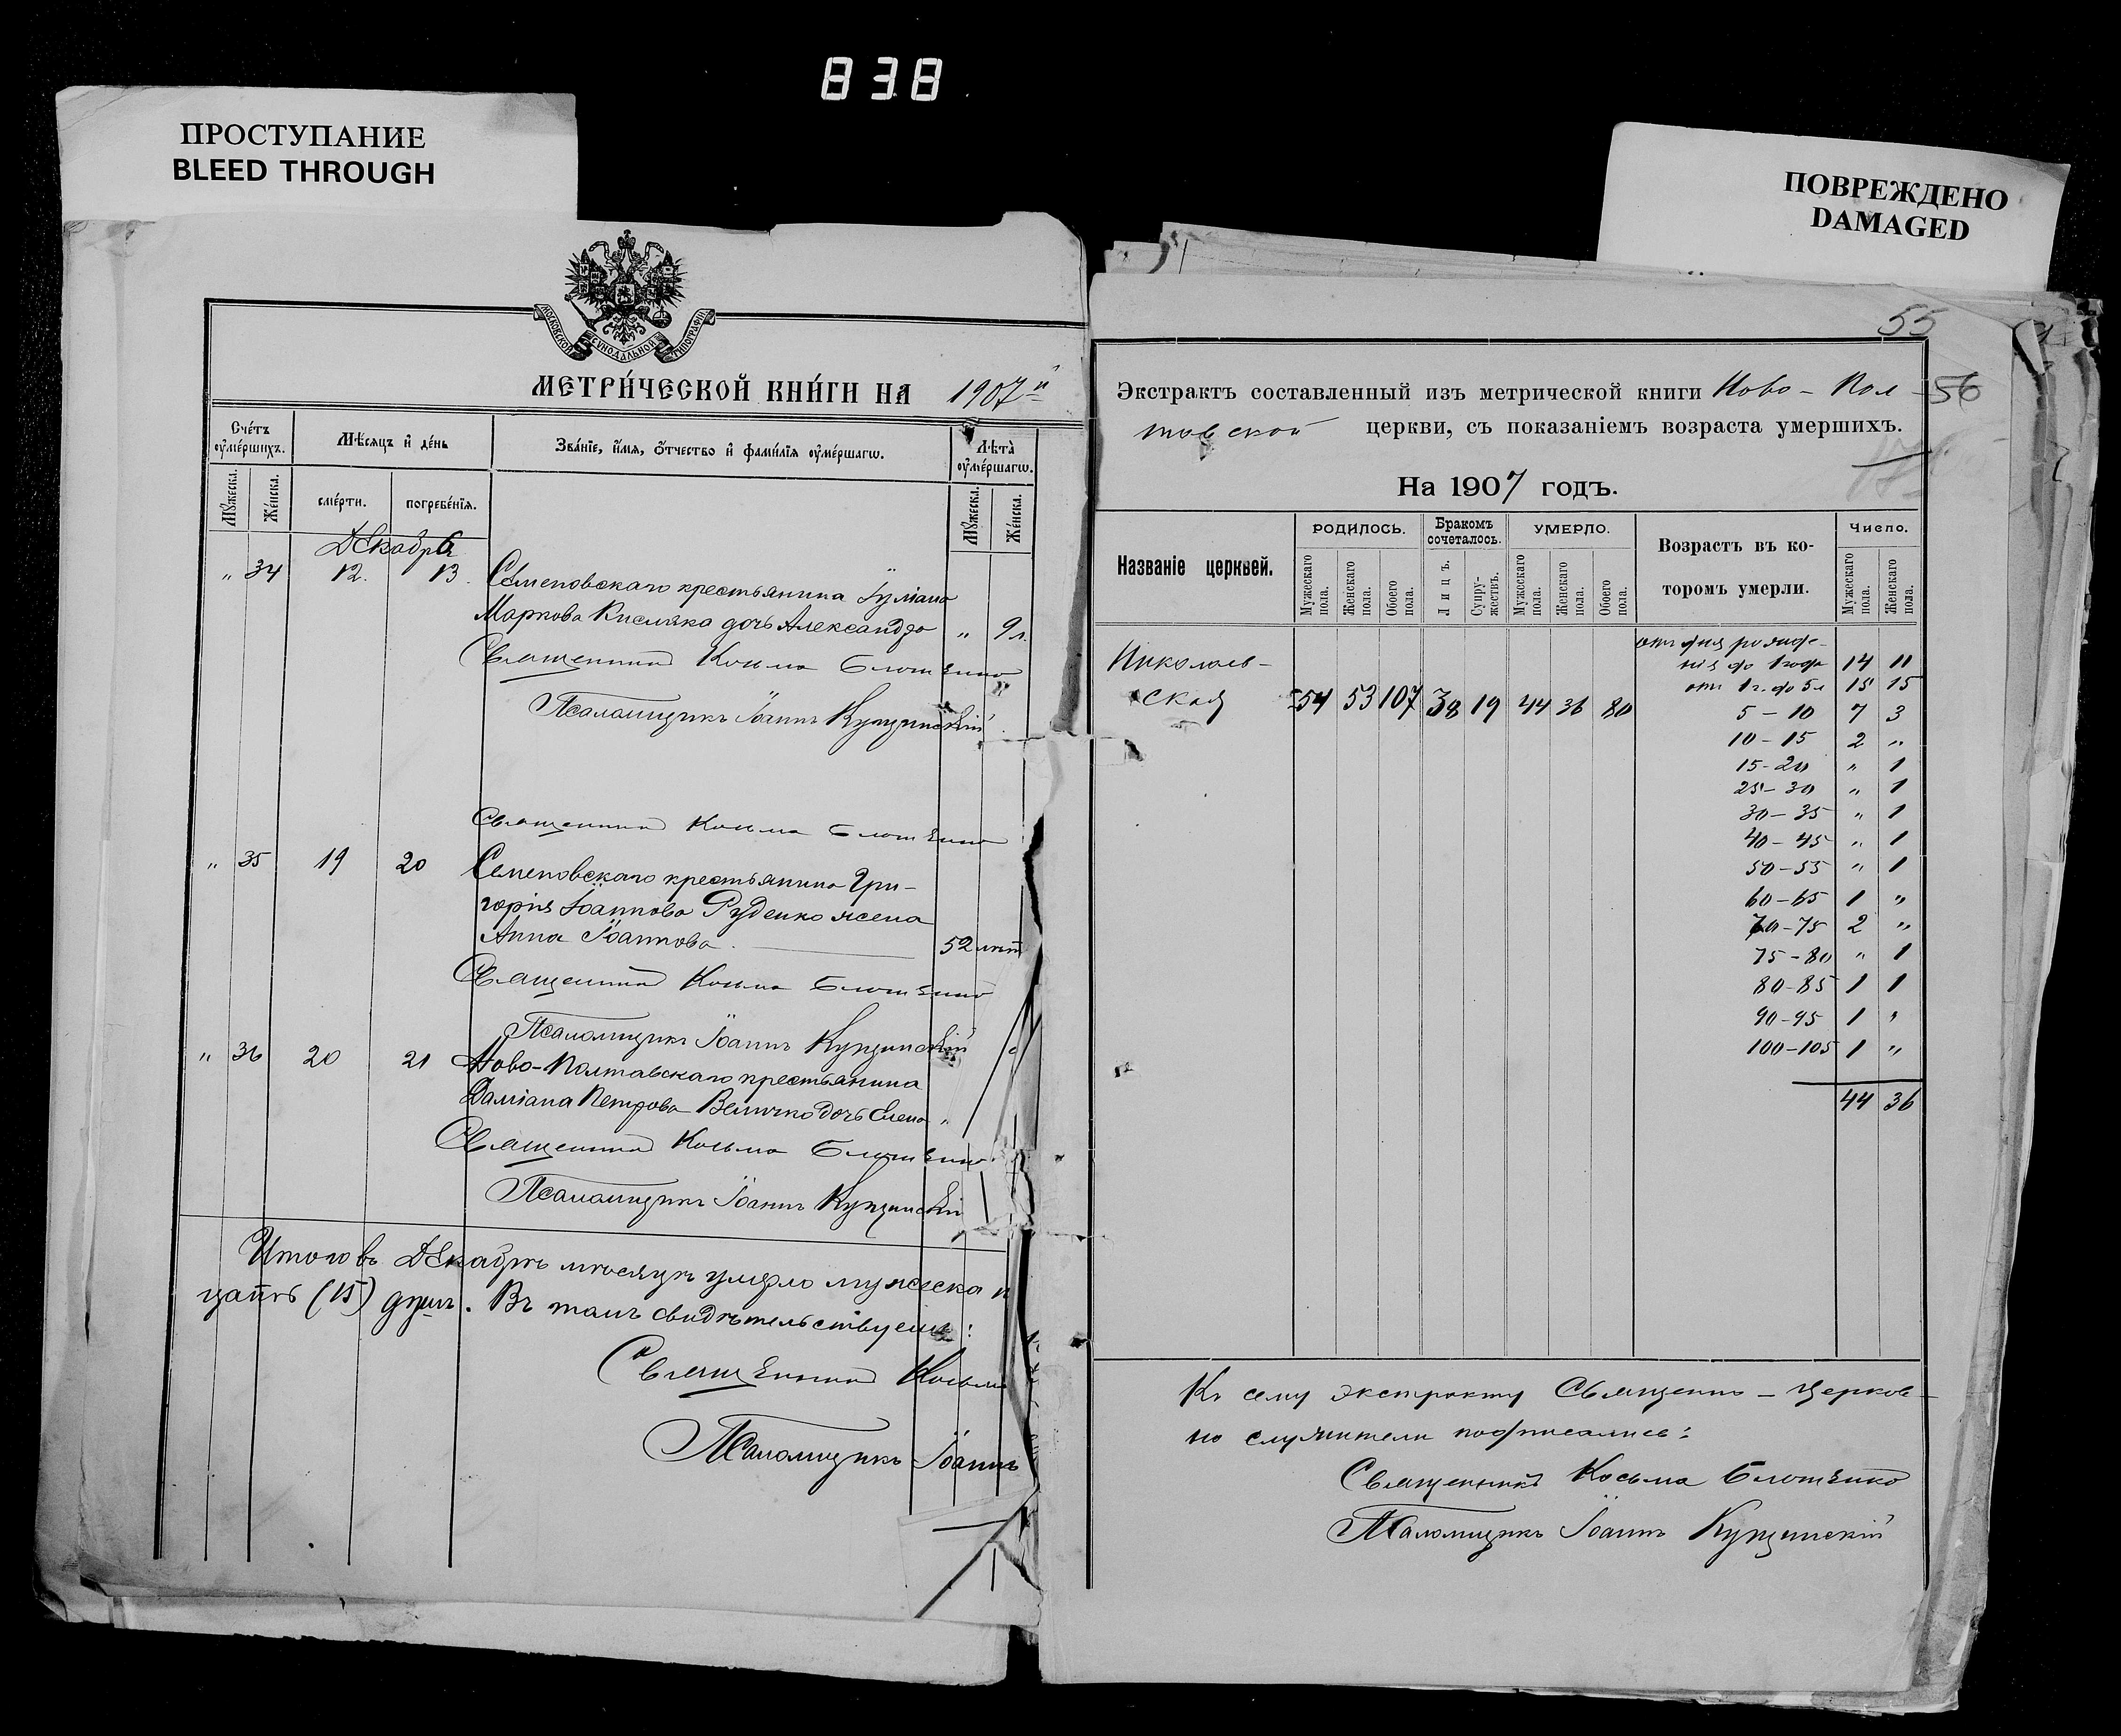 838
ПРОСТУПАНИЕ
BLEED THROUGH
ПОВРЕЖДЕНО
DAMAGED
МОСКОВСКОЙ СѴНОДАЛЬНОЙ ТИПОГРАФІИ
МЕТРИ́ЧЕСКОЙ КНИ́ГИ НА 1907й
Сче́тъ оу҆ме́ршихъ.
Мѣ́сяцъ и҆ де́нь
Зва́нїе, и҆́мя, ѻ҆́тчество и҆ фами́лїя оу҆ме́ршагѡ.
Лѣ́та оу҆ме́ршагѡ.
Мꙋ́жеска.
Же́нска.
сме́рти.
погребе́нїя.
Мꙋ́жеска.
Же́нска.
Декабрь
" 34 12. 13. Семеновскаго крестьянина Іуліана
Маркова Кисляка дочь Александра " 9 л.
Священникъ Косьма Блотенко
Псаломщикъ Іоаннъ Кущинскій
Священникъ Косьма Блотенко
" 35 19 20 Семеновскаго крестьянина Гри-
горія Іоаннова Руденко жена
Анна Іоаннова. 52 лѣт
Священникъ Косьма Блотенко
Псаломщикъ Іоаннъ Кущинскій
" 36 20 21 Ново-Полтавскаго крестьянина
Даміана Петрова Величко дочь Елена "
Священникъ Косьма Блотенко
Псаломщикъ Іоаннъ Кущинскій
Итого въ Декабрѣ мѣсяцѣ умерло мужеска п
цать (15) душъ. Въ томъ свидѣтельствуемъ:
Священникъ Косьма
Псаломщикъ Іоаннъ
55
56
Экстрактъ составленный изъ метрической книги Ново-Пол-
тавской церкви, съ показаніемъ возраста умершихъ.
На 1907 годъ.
Названіе церквей.
РОДИЛОСЬ.
Бракомъ сочеталось.
УМЕРЛО.
Возрастъ въ ко-
торомъ умерли.
Число.
Мужескаго пола.
Женскаго пола.
Обоего пола.
Лицъ.
Супру-жествъ.
Мужескаго пола.
Женскаго пола.
Обоего пола.
Мужескаго пола.
Женскаго пола.
Николаев-
ская 54 53 107 38 19 44 36 80
отъ дня рожде-
нія до 1 года 14 11
отъ 1 г. до 5 л 15 15
5 – 10 7 3
10 – 15 2 "
15 – 20 " 1
25 – 30 " 1
30 – 35 " 1
40 – 45 " 1
50 – 55 " 1
60 – 65 1 "
70 – 75 2 "
75 – 80 " 1
80 – 85 1 1
90 – 95 1 "
100 – 105 1 "
44 36
Къ сему экстракту Священно-церков-
но служители подписались:
Священникъ Косьма Блотенко
Псаломщикъ Іоаннъ Кущинскій